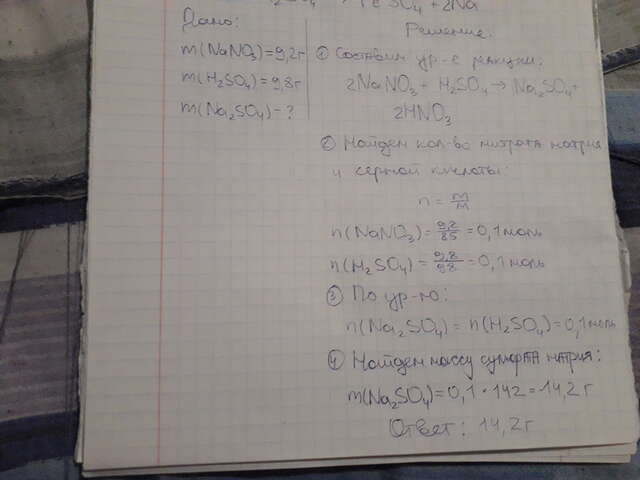 Решение.
Дано:
m(NaNO₃)=9,2г
m(H₂SO₄)=9,8г
m(Na₂SO₄)-?
① Составим ур-е реакции:
2NaNO₃ + H₂SO₄ → Na₂SO₄ +
2HNO₃
② Найдём кол-во нитрата натрия
и серной кислоты:
n = m/M
n(NaNO₃) = 9,2/85 = 0,1 моль
n(H₂SO₄) = 9,8/98 = 0,1 моль
③ По ур-ю:
n(Na₂SO₄) = n(H₂SO₄) = 0,1 моль
④ Найдем массу сульфата натрия:
m(Na₂SO₄)=0,1·142=14,2г
Ответ: 14,2г